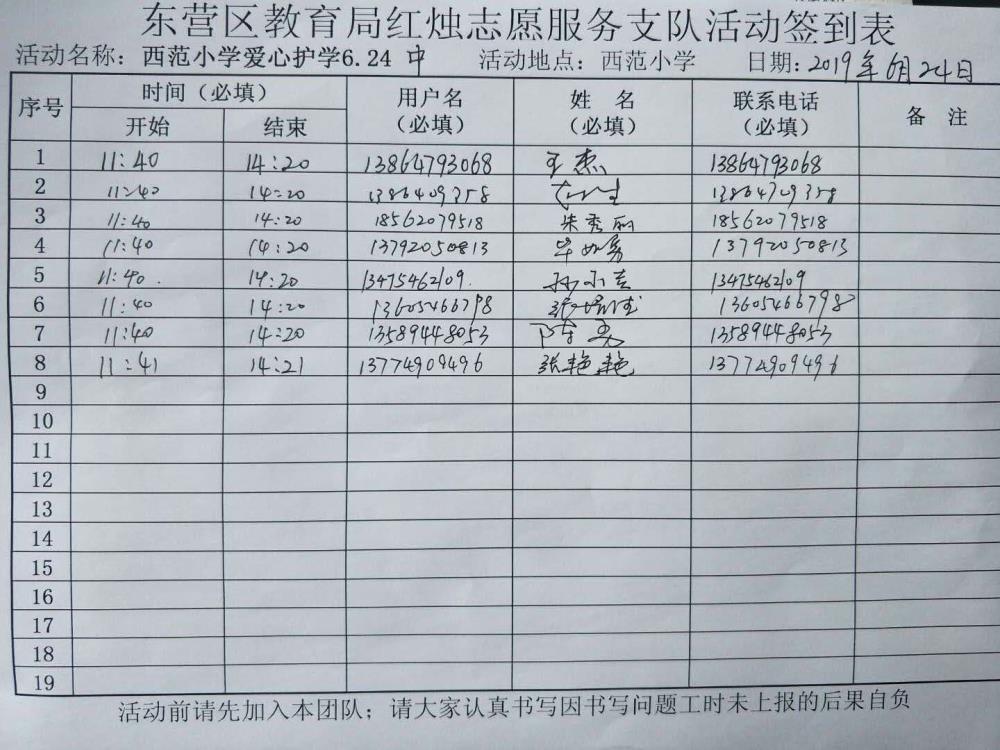 东营区教育局红烛志愿服务支队活动签到表
活动名称：西范小学爱心护学6.24 中 活动地点：西范小学 日期：2019年6月24日
序号 时间（必填） 用户名（必填） 姓 名（必填） 联系电话（必填） 备 注
开始 结束
1 11:40 14:20 13864793068 王杰 13864793068
2 11:40 14:20
3 11:40 14:20 18562079518 朱秀丽 18562079518
4 11:40 14:20 13792050813 13792050813
5 11:40. 14:20 13475462109. 13475462109
6 11:40 14:20 13605466798 13605466798
7 11:40 14:20 13589448053 13589448053
8 11:41 14:21 13774909496 张艳艳 13774909496
9
10
11
12
13
14
15
16
17
18
19
活动前请先加入本团队；请大家认真书写因书写问题工时未上报的后果自负